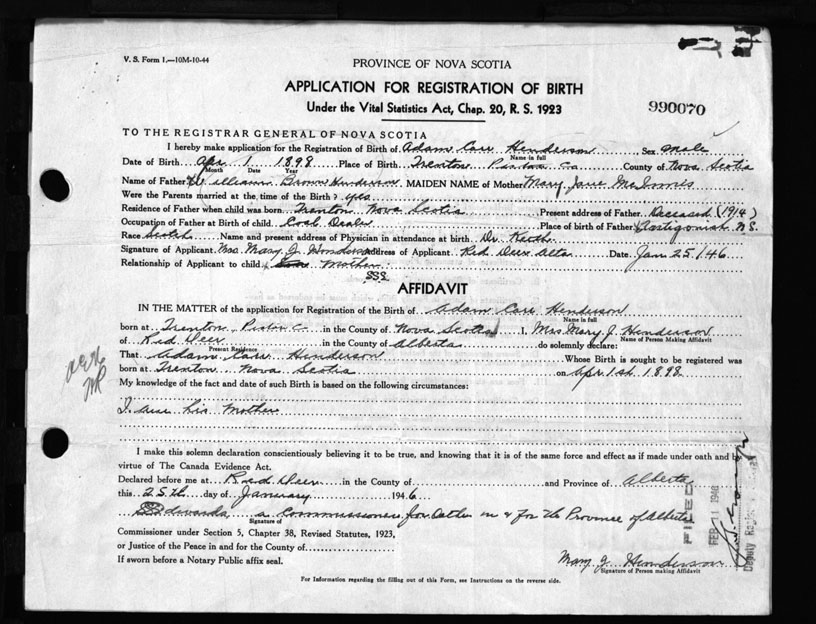 V. S. Form 1.—10M-10-44
PROVINCE OF NOVA SCOTIA
APPLICATION FOR REGISTRATION OF BIRTH
Under the Vital Statistics Act, Chap. 20, R. S. 1923
990070
TO THE REGISTRAR GENERAL OF NOVA SCOTIA
I hereby make application for the Registration of Birth of Adam Carr Henderson, Sex male
Name in full
Date of Birth Apr 1 1898 Place of Birth Trenton Pictou Co County of Nova Scotia
Month Date Year
Name of Father William Brown Henderson MAIDEN NAME of Mother Mary Jane McInnis
Were the Parents married at the time of the Birth? yes
Residence of Father when child was born Trenton Nova Scotia Present address of Father Deceased (1914)
Occupation of Father at Birth of child Coal Dealer Place of birth of Father Antigonish N.S.
Race Scotch Name and present address of Physician in attendance at birth Dr. Keith
Signature of Applicant Mrs Mary J. Henderson Address of Applicant Red Deer Alta Date Jan 25/46
Relationship of Applicant to child Mother
SSS
AFFIDAVIT
IN THE MATTER of the application for Registration of the Birth of Adam Carr Henderson
Name in full
born at Trenton Pictou C in the County of Nova Scotia I, Mrs Mary J. Henderson
Name of Person Making Affidavit
of Red Deer in the County of Alberta do solemnly declare:
Present Residence
That Adam Carr Henderson Whose Birth is sought to be registered was
born at Trenton Nova Scotia on Apr 1st 1898
My knowledge of the fact and date of such Birth is based on the following circumstances:
I am his Mother
I make this solemn declaration conscientiously believing it to be true, and knowing that it is of the same force and effect as if made under oath and by
virtue of The Canada Evidence Act.
Declared before me at Red Deer in the County of and Province of Alberta
this 25th day of January 1946
Edwards a Commissioner for Oaths in & for the Province of Alberta
Signature of
Commissioner under Section 5, Chapter 38, Revised Statutes, 1923,
or Justice of the Peace in and for the County of
If sworn before a Notary Public affix seal.
Mary J. Henderson
Signature of Person making Affidavit
For Information regarding the filling out of this Form, see Instructions on the reverse side.
FILED
FEB 11 1946
Deputy